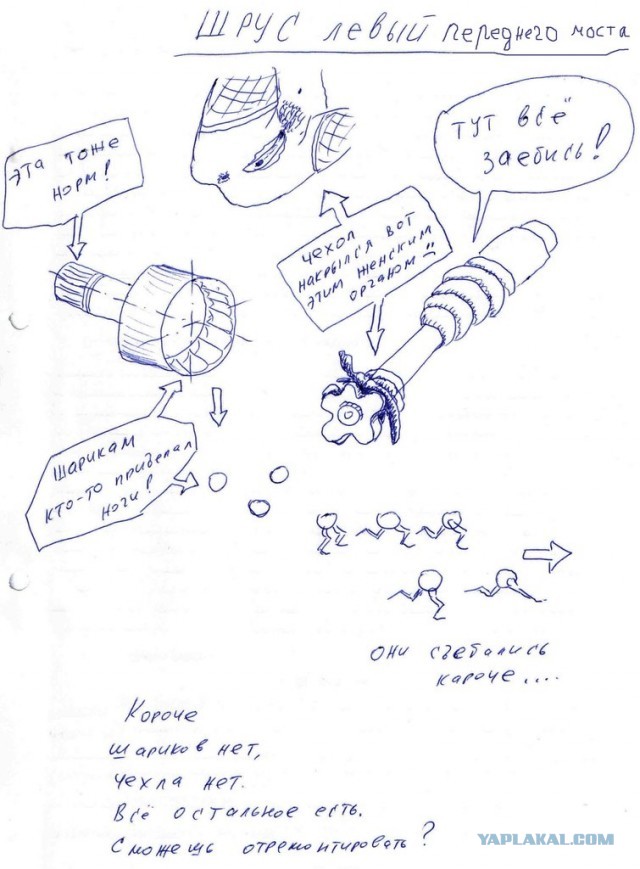 ШРУС левый переднего моста
эта тоже
норм!
ТУТ всё
заебись!
чехол
накрылся вот
этим женским
органом
Шарикам
кто-то приделал
ноги!
они съебались
кароче....
Короче
шариков нет,
чехла нет.
Всё остальное есть.
Сможешь отремонтировать?
YAPLAKAL.COM